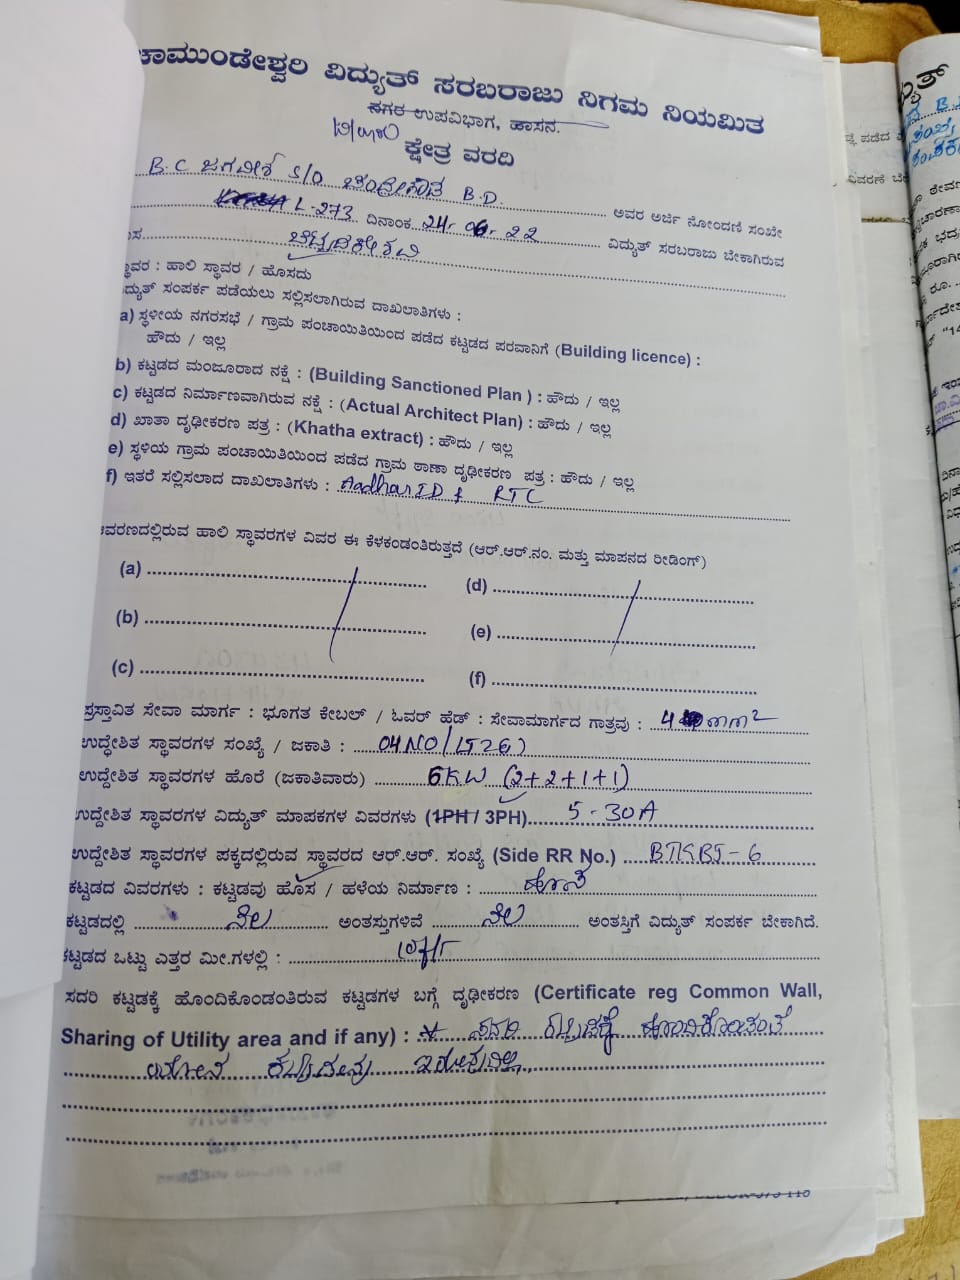 ಚಾಮುಂಡೇಶ್ವರಿ ವಿದ್ಯುತ್ ಸರಬರಾಜು ನಿಗಮ ನಿಯಮಿತ
ನಗರ ಉಪವಿಭಾಗ, ಹಾಸನ.
ಕ್ಷೇತ್ರ ವರದಿ
B.C ಜಗದೀಶ S/O ಚಂದ್ರೇಗೌಡ B.D. ಅವರ ಅರ್ಜಿ ನೋಂದಣಿ ಸಂಖ್ಯೇ
L-273 ದಿನಾಂಕ 24-06-22 ವಿದ್ಯುತ್ ಸರಬರಾಜು ಬೇಕಾಗಿರುವ
ಸ್ಥಾವರ : ಹಾಲಿ ಸ್ಥಾವರ / ಹೊಸದು
ವಿದ್ಯುತ್ ಸಂಪರ್ಕ ಪಡೆಯಲು ಸಲ್ಲಿಸಲಾಗಿರುವ ದಾಖಲಾತಿಗಳು :
a) ಸ್ಥಳೀಯ ನಗರಸಭೆ / ಗ್ರಾಮ ಪಂಚಾಯಿತಿಯಿಂದ ಪಡೆದ ಕಟ್ಟಡದ ಪರವಾನಿಗೆ (Building licence) :
ಹೌದು / ಇಲ್ಲ
b) ಕಟ್ಟಡದ ಮಂಜೂರಾದ ನಕ್ಷೆ : (Building Sanctioned Plan ) : ಹೌದು / ಇಲ್ಲ
c) ಕಟ್ಟಡದ ನಿರ್ಮಾಣವಾಗಿರುವ ನಕ್ಷೆ : (Actual Architect Plan) : ಹೌದು / ಇಲ್ಲ
d) ಖಾತಾ ದೃಢೀಕರಣ ಪತ್ರ : (Khatha extract) : ಹೌದು / ಇಲ್ಲ
e) ಸ್ಥಳಿಯ ಗ್ರಾಮ ಪಂಚಾಯಿತಿಯಿಂದ ಪಡೆದ ಗ್ರಾಮ ಠಾಣಾ ದೃಢೀಕರಣ ಪತ್ರ : ಹೌದು / ಇಲ್ಲ
f) ಇತರೆ ಸಲ್ಲಿಸಲಾದ ದಾಖಲಾತಿಗಳು : Aadhar ID & RTC
ಆವರಣದಲ್ಲಿರುವ ಹಾಲಿ ಸ್ಥಾವರಗಳ ವಿವರ ಈ ಕೆಳಕಂಡಂತಿರುತ್ತದೆ (ಆರ್.ಆರ್.ನಂ. ಮತ್ತು ಮಾಪನದ ರೀಡಿಂಗ್)
(a) (d)
(b) (e)
(c) (f)
ಪ್ರಸ್ತಾವಿತ ಸೇವಾ ಮಾರ್ಗ : ಭೂಗತ ಕೇಬಲ್ / ಓವರ್ ಹೆಡ್ : ಸೇವಾಮಾರ್ಗದ ಗಾತ್ರವು : 4 mm²
ಉದ್ಧೇಶಿತ ಸ್ಥಾವರಗಳ ಸಂಖ್ಯೆ / ಜಕಾತಿ : 04 NO/
ಉದ್ದೇಶಿತ ಸ್ಥಾವರಗಳ ಹೊರೆ (ಜಕಾತಿವಾರು) 6KW (2+2+1+1)
ಉದ್ದೇಶಿತ ಸ್ಥಾವರಗಳ ವಿದ್ಯುತ್ ಮಾಪಕಗಳ ವಿವರಗಳು (1PH / 3PH) 5-30A
ಉದ್ದೇಶಿತ ಸ್ಥಾವರಗಳ ಪಕ್ಕದಲ್ಲಿರುವ ಸ್ಥಾವರದ ಆರ್.ಆರ್. ಸಂಖ್ಯೆ (Side RR No.)
ಕಟ್ಟಡದ ವಿವರಗಳು : ಕಟ್ಟಡವು ಹೊಸ / ಹಳೆಯ ನಿರ್ಮಾಣ : ಹೊಸ
ಕಟ್ಟಡದಲ್ಲಿ ನೆಲ ಅಂತಸ್ತುಗಳಿವೆ ನೆಲ ಅಂತಸ್ತಿಗೆ ವಿದ್ಯುತ್ ಸಂಪರ್ಕ ಬೇಕಾಗಿದೆ.
ಕಟ್ಟಡದ ಒಟ್ಟು ಎತ್ತರ ಮೀ.ಗಳಲ್ಲಿ :
ಸದರಿ ಕಟ್ಟಡಕ್ಕೆ ಹೊಂದಿಕೊಂಡಂತಿರುವ ಕಟ್ಟಡಗಳ ಬಗ್ಗೆ ದೃಢೀಕರಣ (Certificate reg Common Wall,
Sharing of Utility area and if any) : ಸದರಿ ಕಟ್ಟಡಕ್ಕೆ ಹೊಂದಿಕೊಂಡಂತೆ
ಯಾವುದೇ ಕಟ್ಟಡವು ಇರುವುದಿಲ್ಲ.